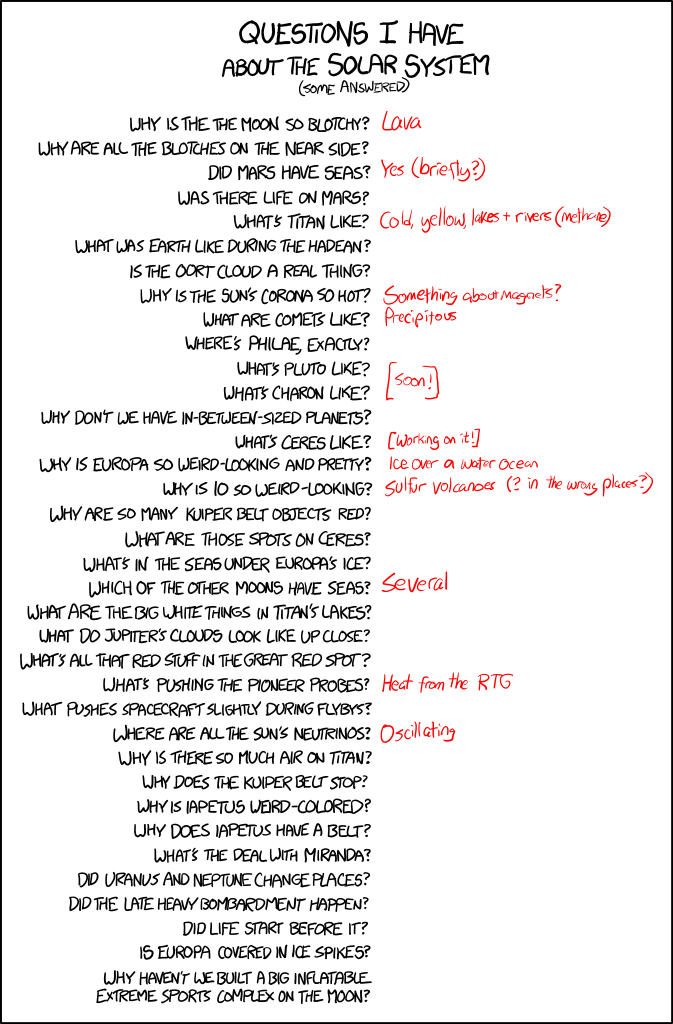 QUESTIONS I HAVE
ABOUT THE SOLAR SYSTEM
(SOME ANSWERED)
WHY IS THE THE MOON SO BLOTCHY? Lava
WHY ARE ALL THE BLOTCHES ON THE NEAR SIDE?
DID MARS HAVE SEAS? Yes (briefly?)
WAS THERE LIFE ON MARS?
WHAT'S TITAN LIKE? Cold, yellow, lakes + rivers (methane)
WHAT WAS EARTH LIKE DURING THE HADEAN?
IS THE OORT CLOUD A REAL THING?
WHY IS THE SUN'S CORONA SO HOT? Something about magnets?
WHAT ARE COMETS LIKE? Precipitous
WHERE'S PHILAE, EXACTLY?
WHAT'S PLUTO LIKE?
WHAT'S CHARON LIKE? [Soon!]
WHY DON'T WE HAVE IN-BETWEEN-SIZED PLANETS?
WHAT'S CERES LIKE? [Working on it!]
WHY IS EUROPA SO WEIRD-LOOKING AND PRETTY? Ice over a water ocean
WHY IS IO SO WEIRD-LOOKING? Sulfur volcanoes (? in the wrong places?)
WHY ARE SO MANY KUIPER BELT OBJECTS RED?
WHAT ARE THOSE SPOTS ON CERES?
WHAT'S IN THE SEAS UNDER EUROPA'S ICE?
WHICH OF THE OTHER MOONS HAVE SEAS? Several
WHAT ARE THE BIG WHITE THINGS IN TITAN'S LAKES?
WHAT DO JUPITER'S CLOUDS LOOK LIKE UP CLOSE?
WHAT'S ALL THAT RED STUFF IN THE GREAT RED SPOT?
WHAT'S PUSHING THE PIONEER PROBES? Heat from the RTG
WHAT PUSHES SPACECRAFT SLIGHTLY DURING FLYBYS?
WHERE ARE ALL THE SUN'S NEUTRINOS? Oscillating
WHY IS THERE SO MUCH AIR ON TITAN?
WHY DOES THE KUIPER BELT STOP?
WHY IS IAPETUS WEIRD-COLORED?
WHY DOES IAPETUS HAVE A BELT?
WHAT'S THE DEAL WITH MIRANDA?
DID URANUS AND NEPTUNE CHANGE PLACES?
DID THE LATE HEAVY BOMBARDMENT HAPPEN?
DID LIFE START BEFORE IT?
IS EUROPA COVERED IN ICE SPIKES?
WHY HAVEN'T WE BUILT A BIG INFLATABLE
EXTREME SPORTS COMPLEX ON THE MOON?